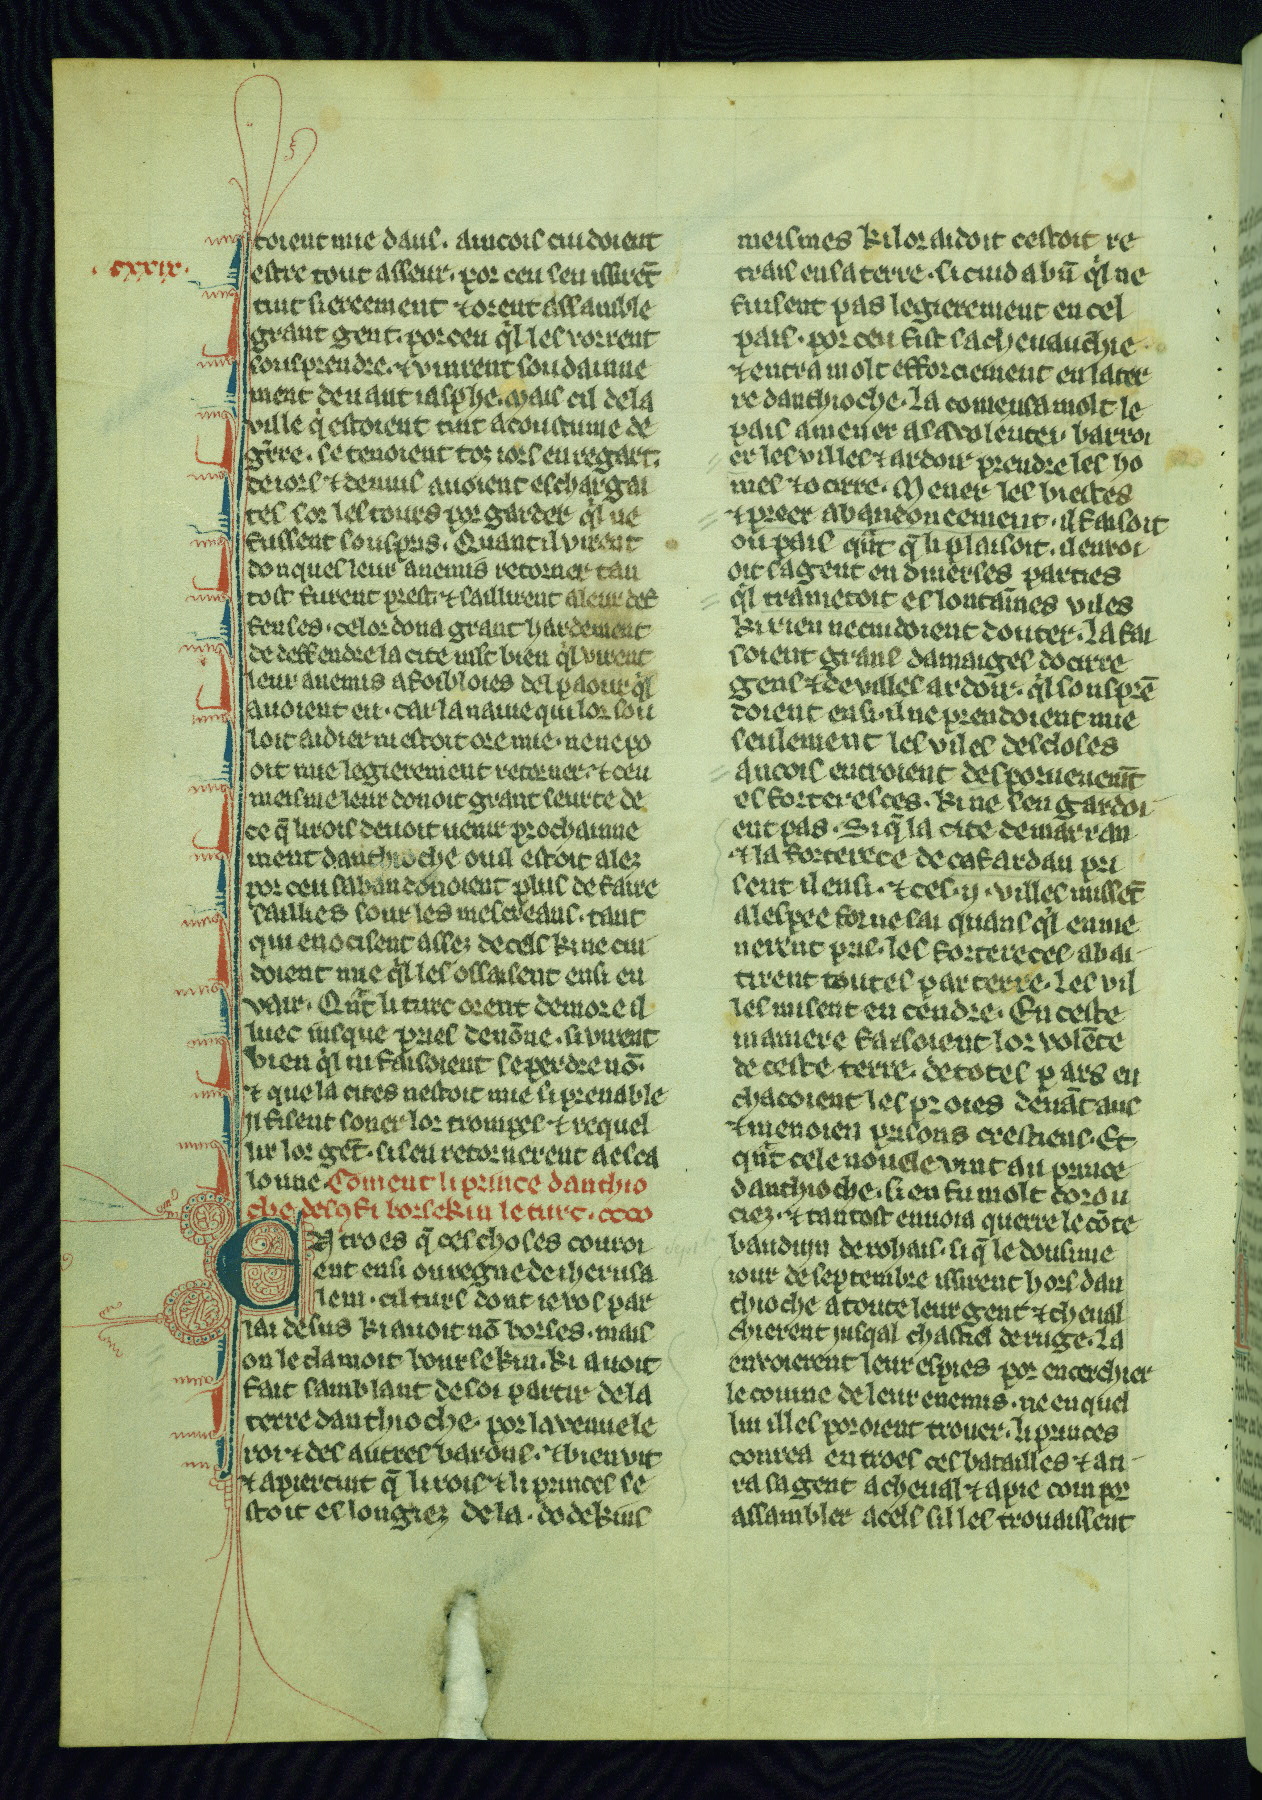 .cxxix.
toient mie dauls. aincois cuidoient
estre tout asseur. por ceu seu issirēt
tuit si ereement ⁊ orent assamble
grant gent. por ceu q̄l les vorrent
sousprendre. ⁊ vinrent soudainne
ment deuant iasphe. mais cil de la
ville q̇ estoient tuit acoustume de
gr̄re. se tenoient toz iors en regart.
de iors ⁊ de nuis auoient eschargai
tes sor les tours por garder q̄l ne
fussent souspris. Quant il virent
donques leur anemis retorner tan
tost furent prest ⁊ saillirent a leur def
fenses. ce lor dona grant hardement
de deffendre la cite mlt bien q̄l virent
leur anemis afoibloies del paour q̄l
auoient eu. car la naiue qui lor sou
loit aidier niestoit ore mie. ne ne po
oit mie legierement retorner. ⁊ ceu
meisme leur donoit grant seurte de
ce q̄ li rois deuoit uenir prochainne
ment danthioche ou il estoit alez
por ceu sabandonoient plus de faire
saillies sour les mescreans. tant
qui en ocisent assez de cels ki ne cui
doient mie q̄l les ossaisent ensi en
vair. Qn̄t li turc orent demore il
luec iusque pries de nōne. si virent
bien q̄l ni faisoient se perdre nō.
⁊ que la cites nestoit mie si prenable
Il fisent soner lor trompes ⁊ requel
lir lor gēt. si seu retornerent a esca
lonne. Coment li prince danthio
che descōfi borsekin le turc. ccco
En troes q̄ ces choses couroi
ent ensi ou regne de iherusa
lem. cil turs dont ie vos par
lai desus ki auoit nō borses. mais
on le clamoit boursekin. ki auoit
fait samblant de soi partir de la
terre danthioche. por la venue le
roi ⁊ des autres barons. ⁊ bien vit
⁊ apiercuit q̄ li rois ⁊ li princes se
stoit eslongiez de la. dodekins
meismes ki lor aidoit cestoit re
trais en sa terre. si cuida bn̄ q̄l ne
fuisent pas legierement en cel
pais. por ceu fist sa cheuauchie
⁊ entra molt efforciement en la ter
re danthioche. La comensa molt le
pais a mener a sa volentei. barroi
er les villes ⁊ ardoir prendre les ho
mes ⁊ ocirre. Mener les biestes
⁊ preer abandoneement. il faisoit
ou pais qn̄t q̄ li plaisoit. il enuoi
oit sa gent en diuerses parties
q̄l trametoit es lontainnes viles
ki rien ne cuidoient douter. La fai
soient grans damaiges docirre
gens ⁊ de villes ardoir. q̄l sousprē
doient ensi. il ne prendoient mie
seulement les viles deschoses
ancois entroient desporuenemt̄
es forteresces. ki ne sen gardoi
ent pas. Si q̄ la cite de marran
⁊ la forterece de cafardan pri
sent il ensi. ⁊ ces .ij. villes missēt
a lespee for ne sai quans q̄l enme
nerent pris. les forteresces abai
tirent toutes par terre. Les vil
les misent en cendre. En ceste
maniere faisoient lor volēte
de ceste terre. de totes pars en
chacoient les proies deuāt aus
⁊ menoien prisons crestiens. Et
qn̄t cele nouele vint au prince
danthioche. si en fu molt corou
ciez. ⁊ tantost enuoia querre le cōte
bauduin de rohais. si q̄ le dousime
iour de septembre issirent hors dan
thioche a toute leur gent ⁊ cheual
chierent jusqal chastel de ruge. La
enuoierent leur espies por encerchier
le couine de leur enemis. ne en quel
liu il les poroient trouer. li princes
conrea en troes ces batailles ⁊ atī
ra sa gent a cheual ⁊ a pie com por
assambler a cels sil les trouaissent